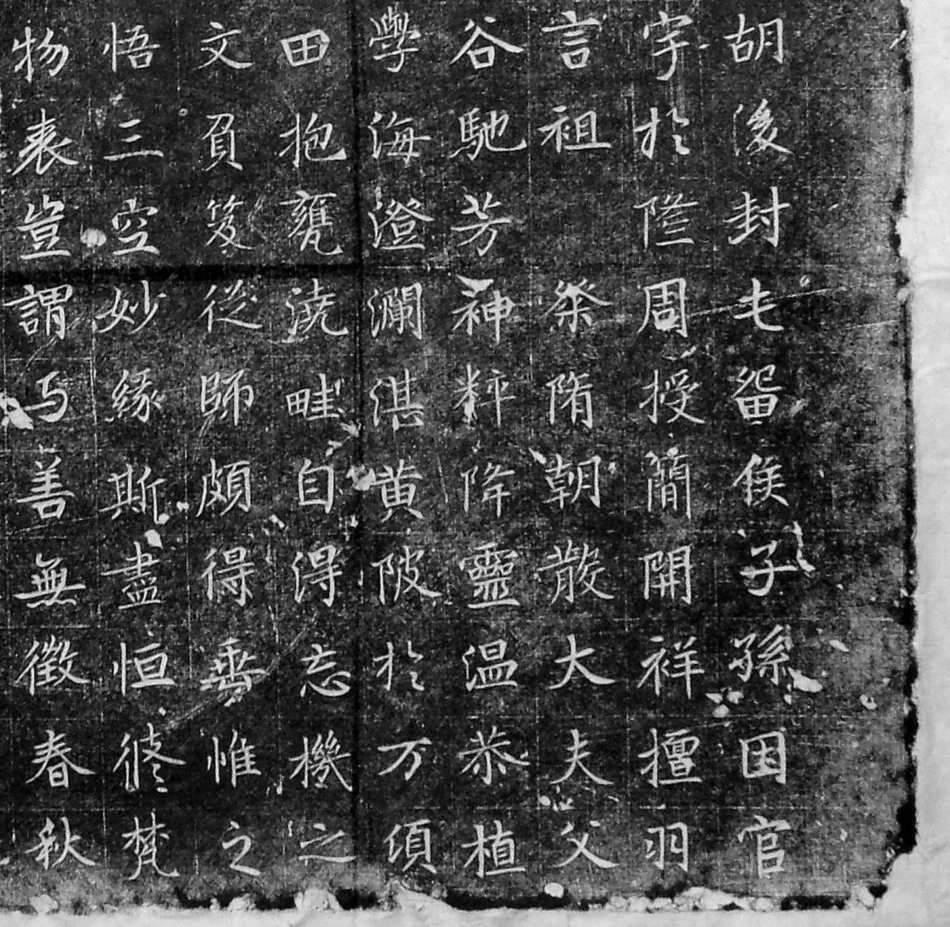 胡後封屯留侯子孫因官
宇於隆周授簡開祥擅羽
言祖 榮隋朝散大夫父
谷馳芳神粹降靈温恭植
學海澄瀾湛黄陂於万頃
田抱甕澆畦自得忘機之
文負笈從師頗得無惟之
悟三空妙緣斯盡恒修梵
物表豈謂与善無徵春秋